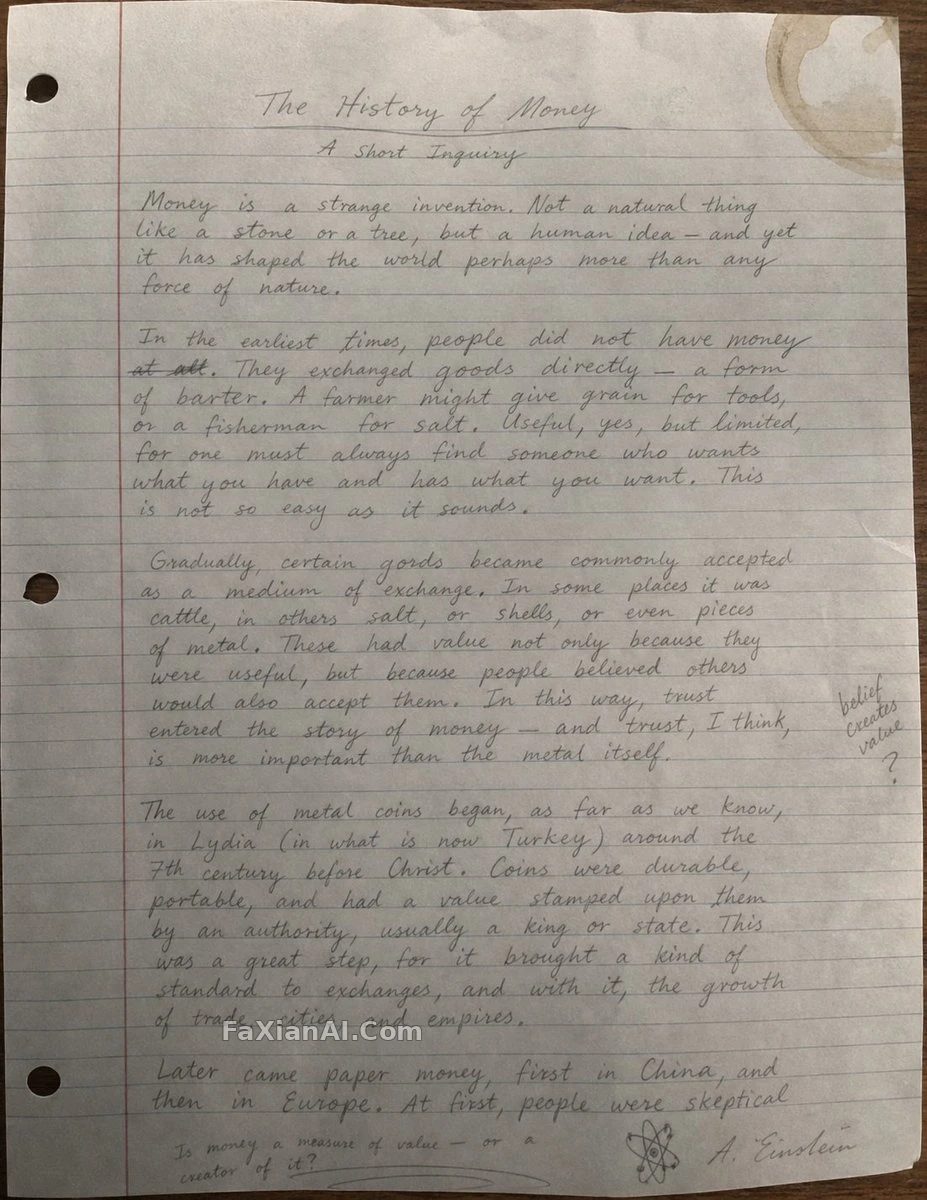 The History of Money
A Short Inquiry
Money is a strange invention. Not a natural thing
like a stone or a tree, but a human idea — and yet
it has shaped the world perhaps more than any
force of nature.
In the earliest times, people did not have money
at all. They exchanged goods directly — a form
of barter. A farmer might give grain for tools,
or a fisherman for salt. Useful, yes, but limited,
for one must always find someone who wants
what you have and has what you want. This
is not so easy as it sounds.
Gradually, certain goods became commonly accepted
as a medium of exchange. In some places it was
cattle, in others salt, or shells, or even pieces
of metal. These had value not only because they
were useful, but because people believed others
would also accept them. In this way, trust
entered the story of money — and trust, I think,
is more important than the metal itself.
belief
creates
value
?
The use of metal coins began, as far as we know,
in Lydia (in what is now Turkey) around the
7th century before Christ. Coins were durable,
portable, and had a value stamped upon them
by an authority, usually a king or state. This
was a great step, for it brought a kind of
standard to exchanges, and with it, the growth
of trade, cities and empires.
FaXianAI.Com
Later came paper money, first in China, and
then in Europe. At first, people were skeptical
Is money a measure of value — or a
creator of it?
A. Einstein